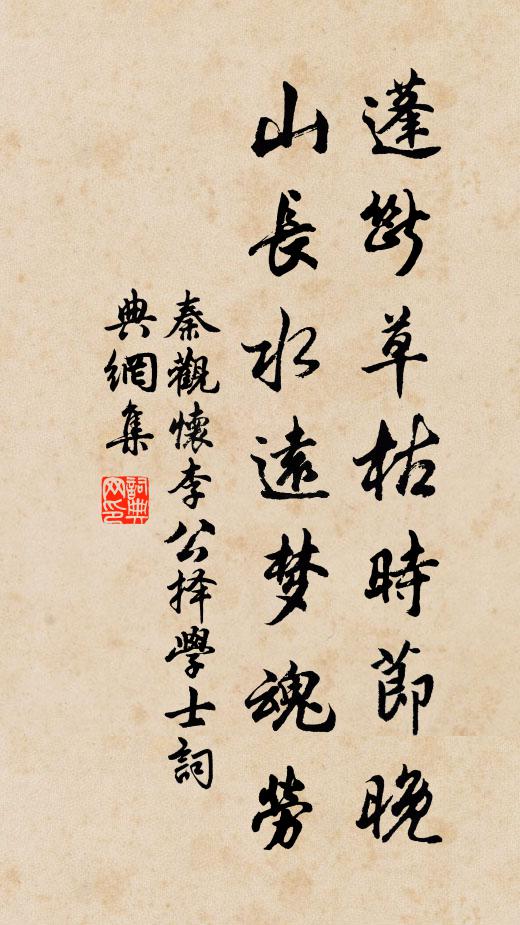 蓬断草枯時節晚
山長水遠梦魂勞
秦觀懷李公择學士詞
典網集
詞典网印